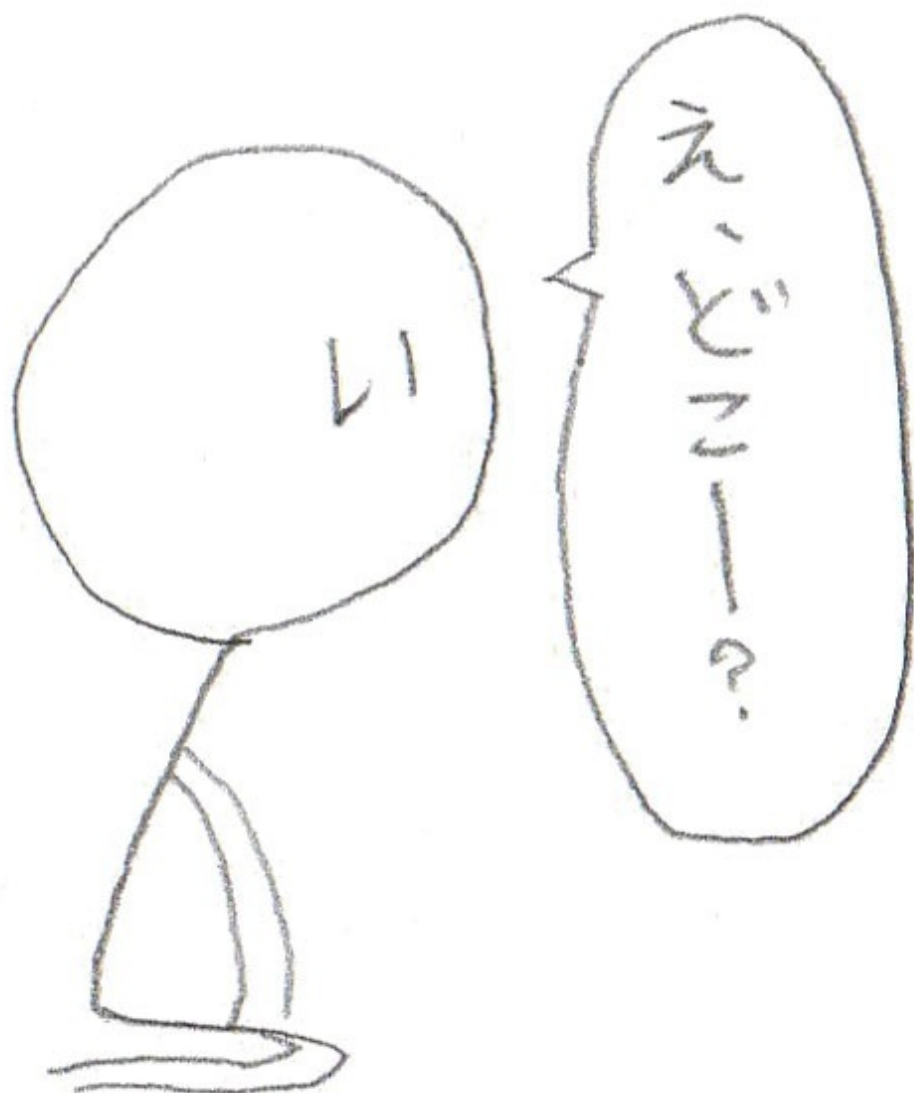 え、どこー?